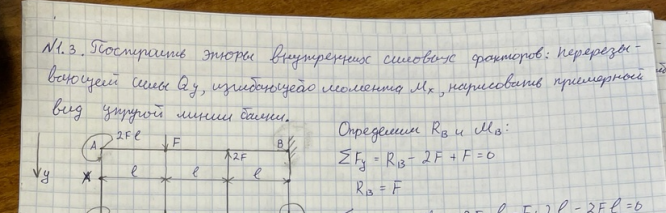 №1.3. Построить эпюры внутренних силовых факторов: перерезы-
вающей силы Qy, изгибающего момента Mx, нарисовать примерный
вид упругой линии балки.
Определим RB и MB:
A 2Fl F 2F B
ΣFy = RB - 2F + F = 0
y l l l
RB = F